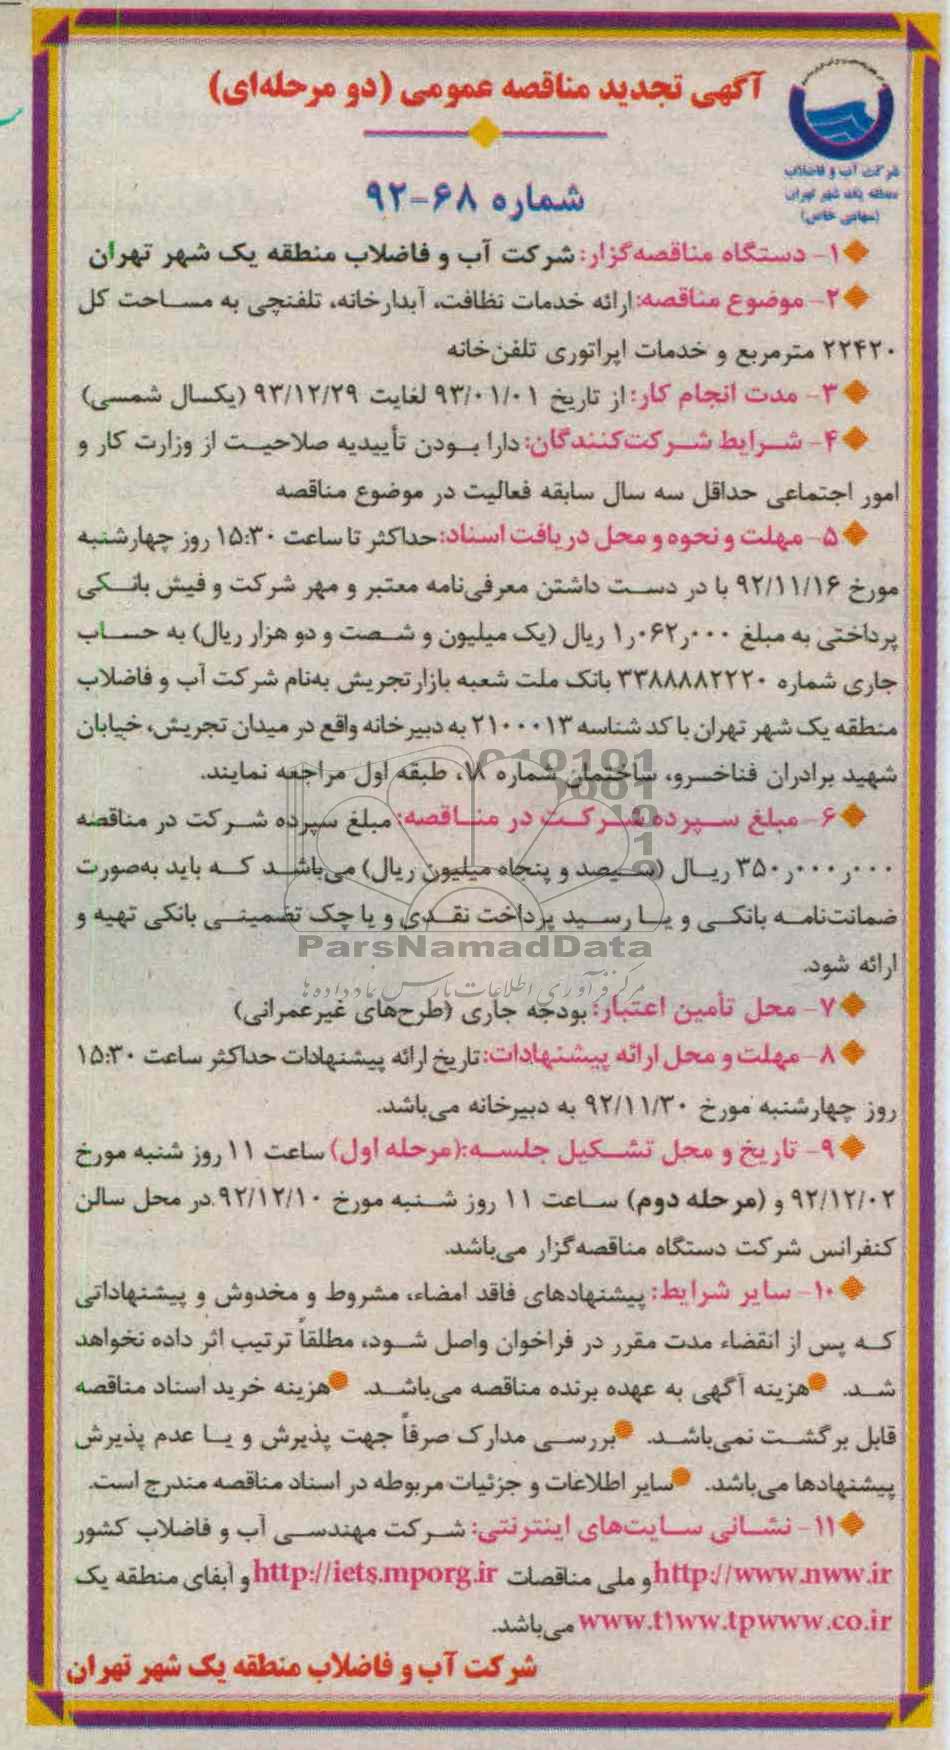 آگهی تجدید مناقصه عمومی (دو مرحله‌ای)
شرکت آب و فاضلاب
منطقه یک شهر تهران
(سهامی خاص)
شماره ۶۸-۹۲
۱- دستگاه مناقصه‌گزار: شرکت آب و فاضلاب منطقه یک شهر تهران
۲- موضوع مناقصه: ارائه خدمات نظافت، آبدارخانه، تلفنچی به مساحت کل
۲۲۴۲۰ مترمربع و خدمات اپراتوری تلفن‌خانه
۳- مدت انجام کار: از تاریخ ۹۳/۰۱/۰۱ لغایت ۹۳/۱۲/۲۹ (یکسال شمسی)
۴- شرایط شرکت‌کنندگان: دارا بودن تأییدیه صلاحیت از وزارت کار و
امور اجتماعی حداقل سه سال سابقه فعالیت در موضوع مناقصه
۵- مهلت و نحوه و محل دریافت اسناد: حداکثر تا ساعت ۱۵:۳۰ روز چهارشنبه
مورخ ۹۲/۱۱/۱۶ با در دست داشتن معرفی‌نامه معتبر و مهر شرکت و فیش بانکی
پرداختی به مبلغ ۱٫۰۶۲٫۰۰۰ ریال (یک میلیون و شصت و دو هزار ریال) به حساب
جاری شماره ۳۳۸۸۸۸۲۲۲۰ بانک ملت شعبه بازار تجریش به‌نام شرکت آب و فاضلاب
منطقه یک شهر تهران با کد شناسه ۲۱۰۰۰۱۳ به دبیرخانه واقع در میدان تجریش، خیابان
شهید برادران فناخسرو، ساختمان شماره ۷۸، طبقه اول مراجعه نمایند.
۶- مبلغ سپرده شرکت در مناقصه: مبلغ سپرده شرکت در مناقصه
۳۵۰٫۰۰۰٫۰۰۰ ریال (سیصد و پنجاه میلیون ریال) می‌باشد که باید به‌صورت
ضمانت‌نامه بانکی و یا رسید پرداخت نقدی و یا چک تضمینی بانکی تهیه و
ParsNamadData
ارائه شود.
مرکز فرآوری اطلاعات پارس نماد داده ها
۷- محل تأمین اعتبار: بودجه جاری (طرح‌های غیرعمرانی)
۸- مهلت و محل ارائه پیشنهادات: تاریخ ارائه پیشنهادات حداکثر ساعت ۱۵:۳۰
روز چهارشنبه مورخ ۹۲/۱۱/۳۰ به دبیرخانه می‌باشد.
۹- تاریخ و محل تشکیل جلسه: (مرحله اول) ساعت ۱۱ روز شنبه مورخ
۹۲/۱۲/۰۲ و (مرحله دوم) ساعت ۱۱ روز شنبه مورخ ۹۲/۱۲/۱۰ در محل سالن
کنفرانس شرکت دستگاه مناقصه‌گزار می‌باشد.
۱۰- سایر شرایط: پیشنهادهای فاقد امضاء، مشروط و مخدوش و پیشنهاداتی
که پس از انقضاء مدت مقرر در فراخوان واصل شود، مطلقاً ترتیب اثر داده نخواهد
شد. هزینه آگهی به عهده برنده مناقصه می‌باشد. هزینه خرید اسناد مناقصه
قابل برگشت نمی‌باشد. بررسی مدارک صرفاً جهت پذیرش و یا عدم پذیرش
پیشنهادها می‌باشد. سایر اطلاعات و جزئیات مربوطه در اسناد مناقصه مندرج است.
۱۱- نشانی سایت‌های اینترنتی: شرکت مهندسی آب و فاضلاب کشور
http://www.nww.ir و ملی مناقصات http://iets.mporg.ir و آبفای منطقه یک
www.t1ww.tpwww.co.ir می‌باشد.
شرکت آب و فاضلاب منطقه یک شهر تهران